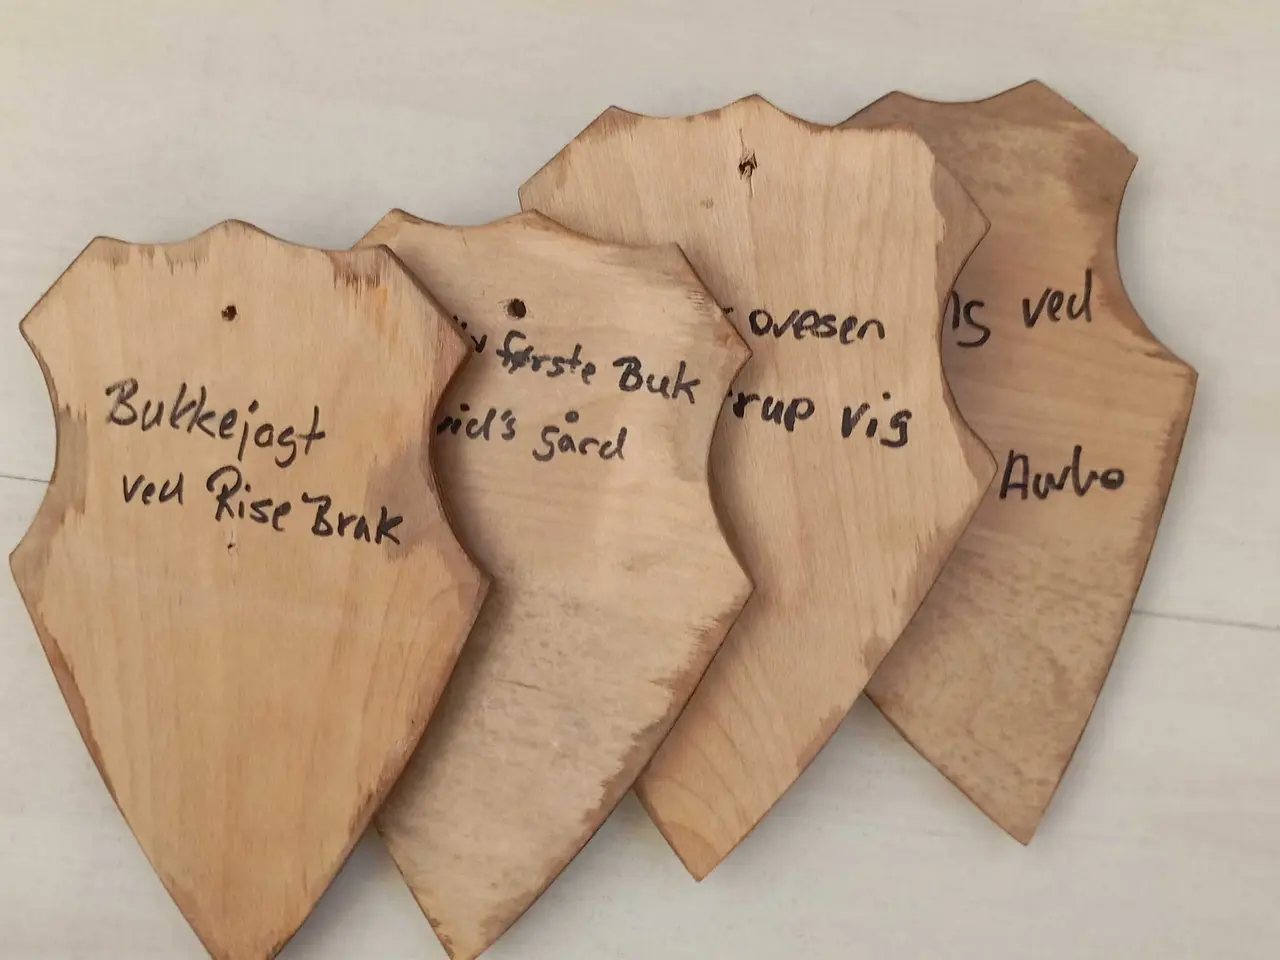 Bukkejagt
ved Rise Brak
første Buk
gård
ovesen
rup vig
ved